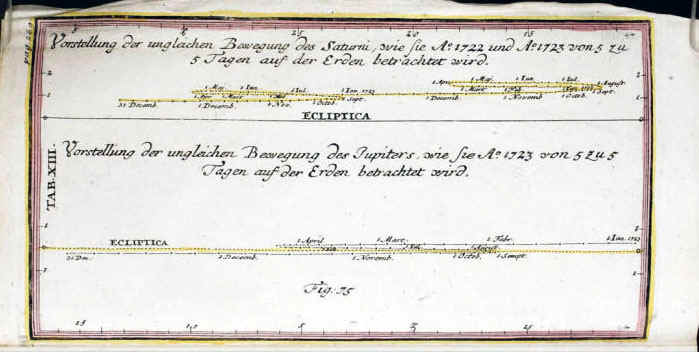 pag. 220
5 25 20 15
Vorstellung der ungleichen Bewegung des Saturni, wie sie Aº. 1722 und Aº. 1723 von 5 zu
5 Tagen auf der Erden betrachtet wird.
1. Apr. 1. Maj. 1. Jun. 1. Jul. 1. August.
1. Maj. 1. Jun. 1. Jul. 1. Jan. 1723
1. Mart. 1. Feb. 1. Sept.
1. Apr. 1. Mart. 1. Sept.
31. Decemb. 1. Decemb. 1. Nov. 1. Octob. 1. Decemb. 1. Novemb. 1. Octob.
ECLIPTICA
TAB. XIII.
Vorstellung der ungleichen Bewegung des Jupiters, wie sie Aº. 1723 von 5 zu 5
Tagen auf der Erden betrachtet wird.
ECLIPTICA 1. April 1. Mart. 1. Febr. 1. Jan. 1723
1. August.
31. Dec. 1. Decemb. 1. Novemb. 1. Octob. 1. Sempt.
Fig. 25
25 10 5 25